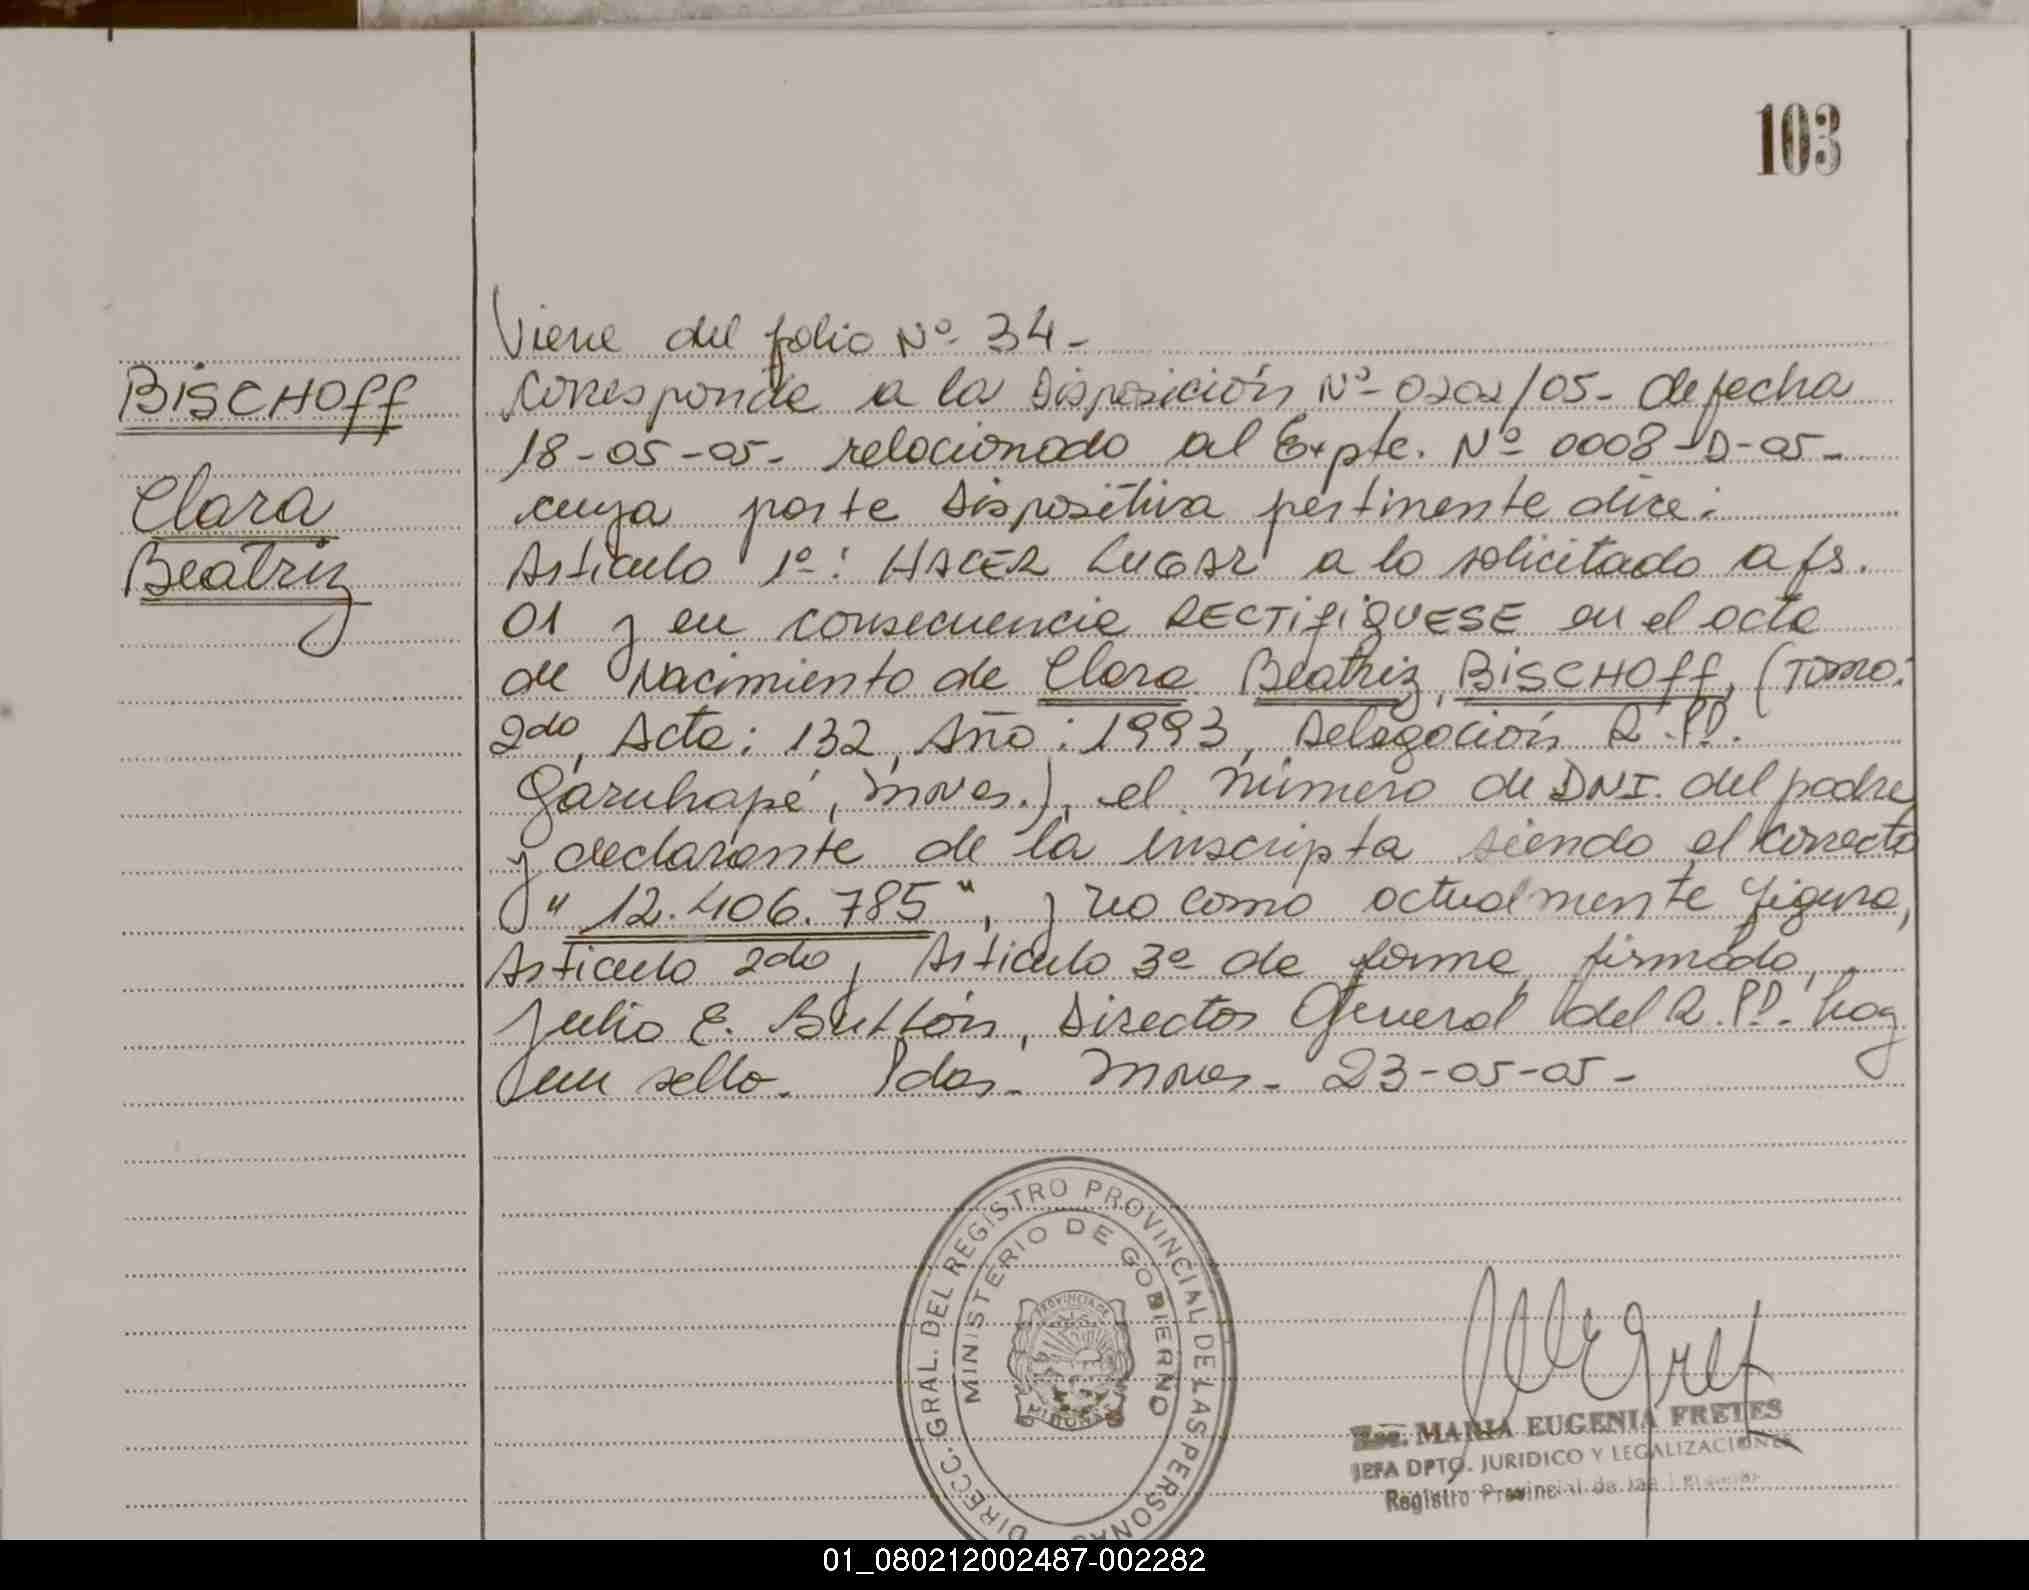 103
Viene del folio Nº 34-
BISCHOFF
Corresponde a la Disposición Nº 0202/05- de fecha
18-05-05- relacionado al Expte. Nº 0008-D-05-
Clara
cuya parte dispositiva pertinente dice:
Beatriz
Artículo 1º: HACER LUGAR a lo solicitado a fs.
01 y en consecuencia RECTIFIQUESE en el acta
de Nacimiento de Clara Beatriz, BISCHOFF, (Tomo:
2do, Acta: 132, Año: 1993, Delegación R.P.P.
Garuhapé, Mnes.), el número de DNI. del padre
y declarante de la inscripta siendo el correcto
" 12.406.785 ", y no como actualmente figura,
Artículo 2do y Artículo 3º de forma, firmado,
Julio E. Buttón, Director General del R.P.P. hay
un sello. Pdas. Mnes- 23-05-05-
DIRECC. GRAL. DEL REGISTRO PROVINCIAL DE LAS PERSONAS
MINISTERIO DE GOBIERNO
PROVINCIA DE
MISIONES
MARIA EUGENIA FRETES
JEFA DPTO. JURIDICO Y LEGALIZACIONES
Registro Provincial de las
01_080212002487-002282